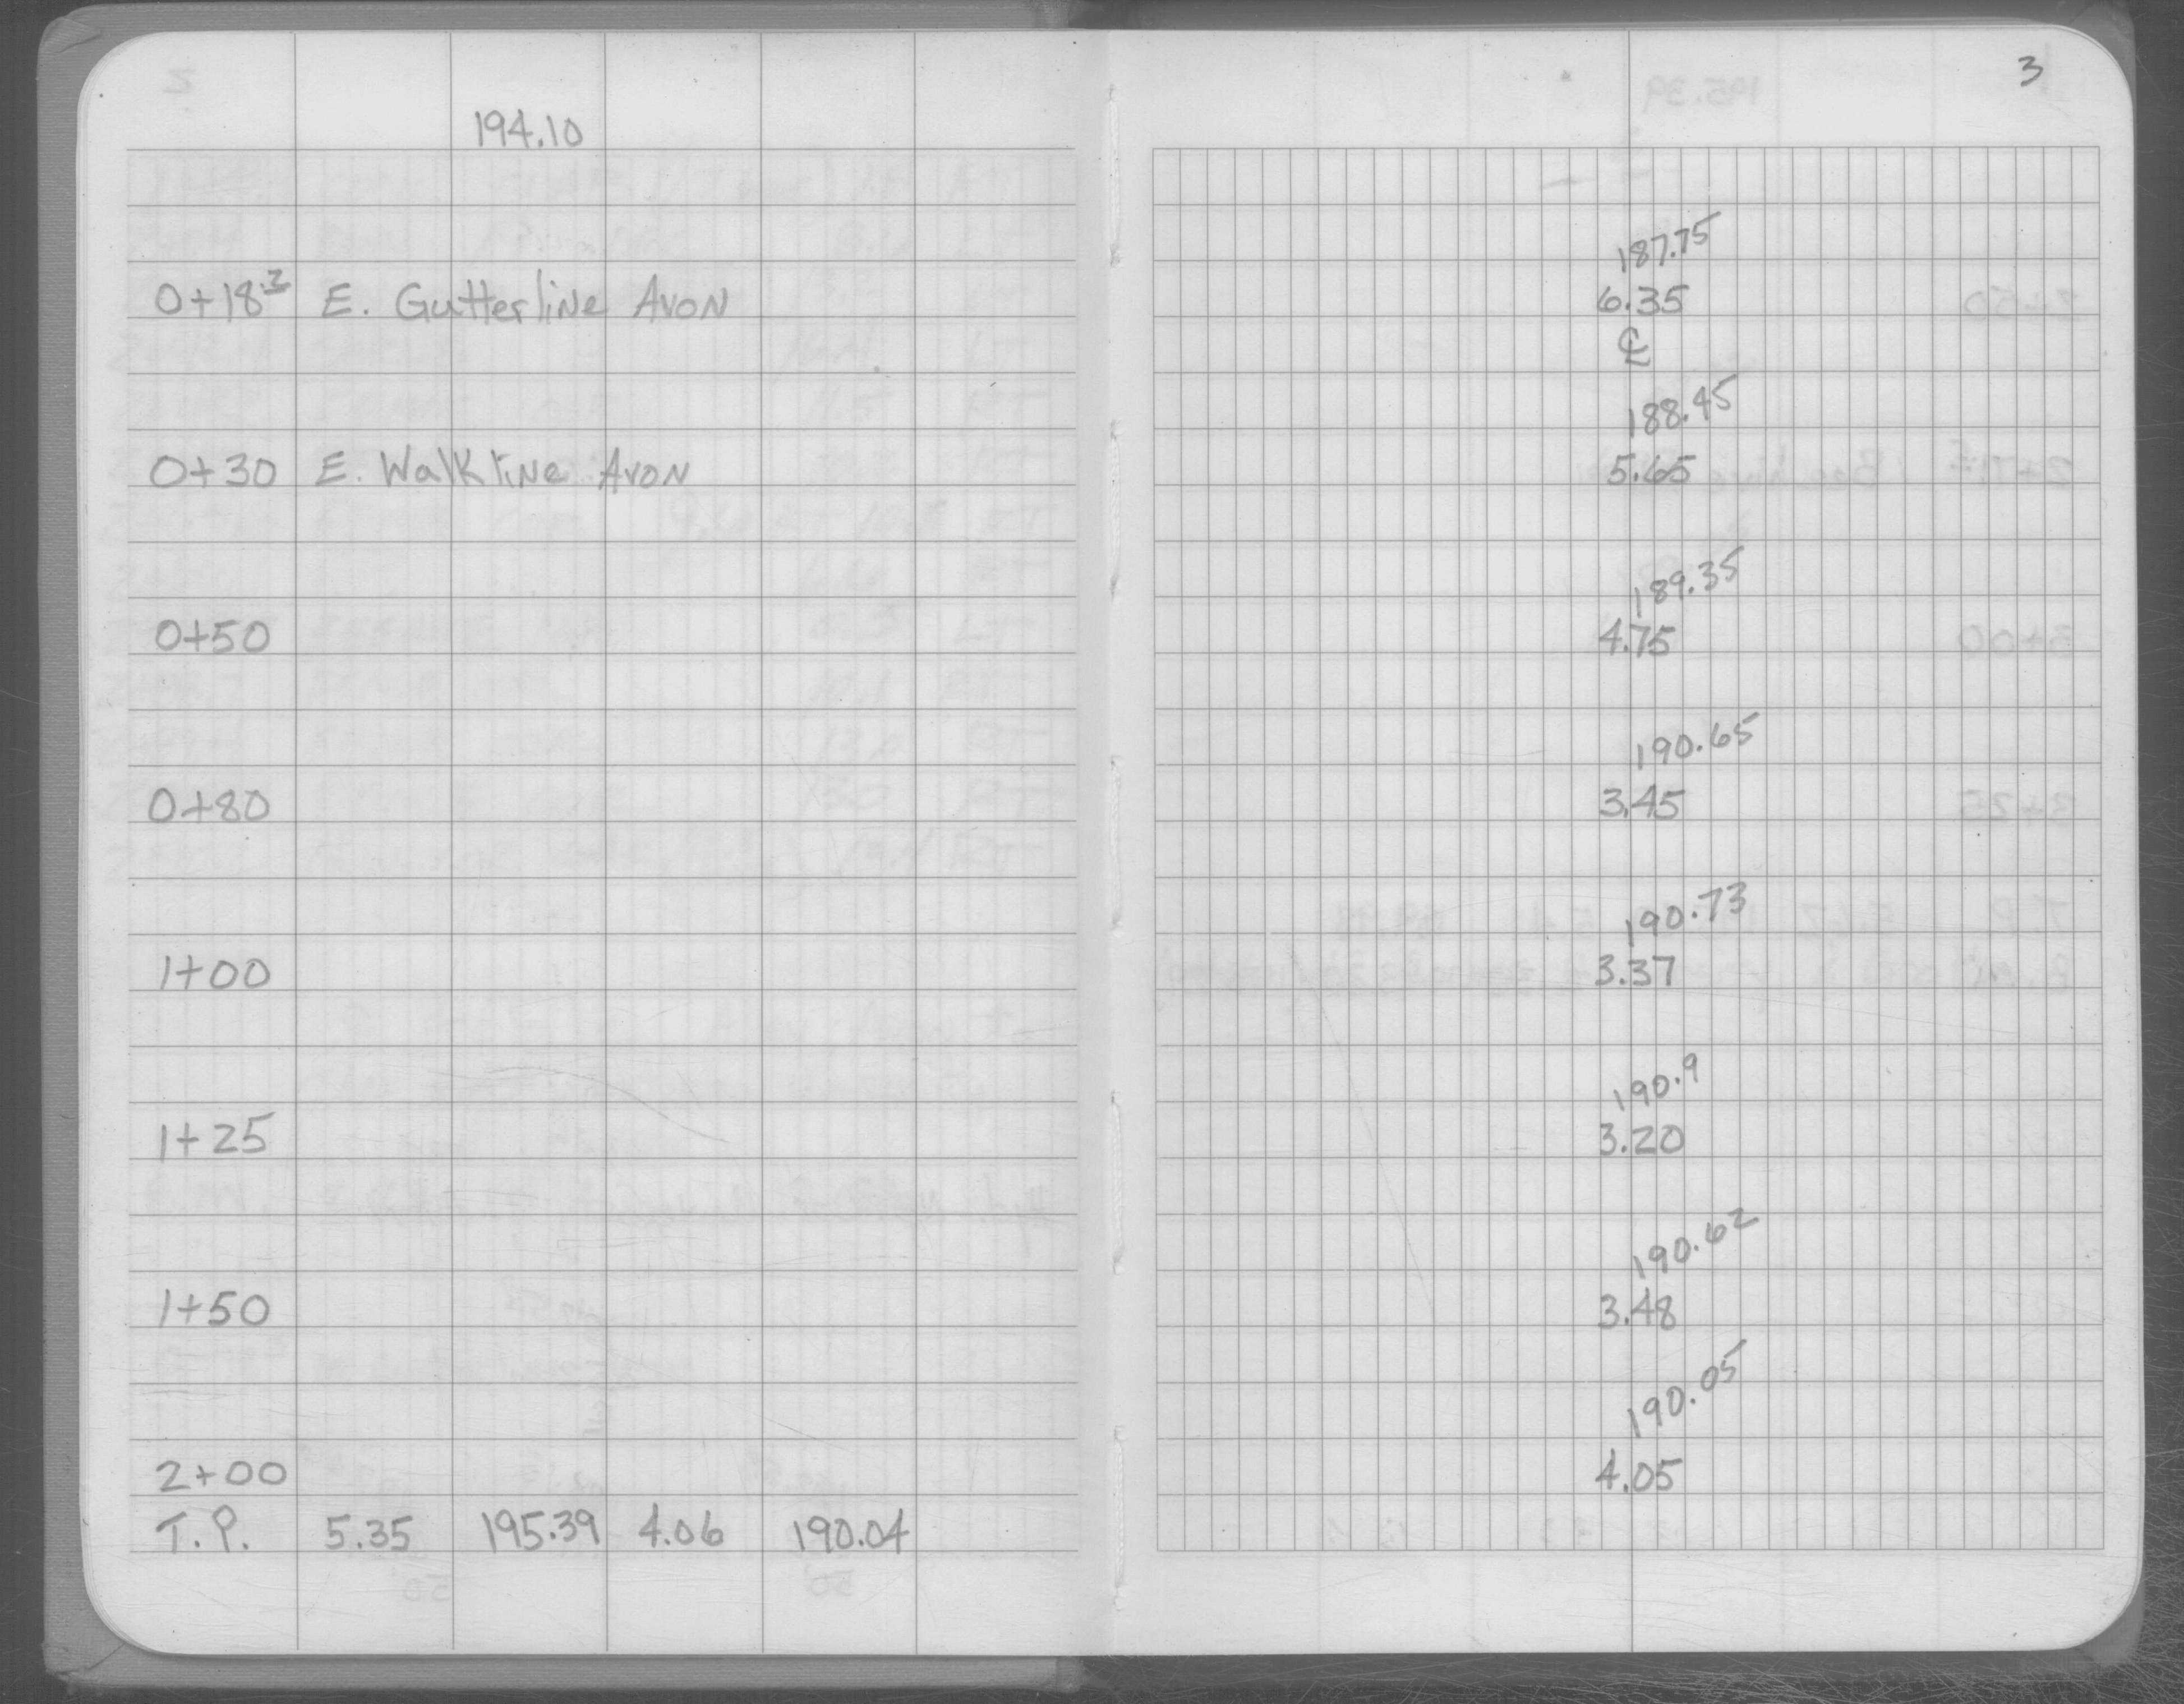 3
194.10
187.75
0+18.3 E. Gutterline Avon 6.35
℄
188.45
0+30 E. Walkline Avon 5.65
189.35
0+50 4.75
190.65
0+80 3.45
190.73
1+00 3.37
190.9
1+25 3.20
190.62
1+50 3.48
190.05
2+00 4.05
T.P. 5.35 195.39 4.06 190.04